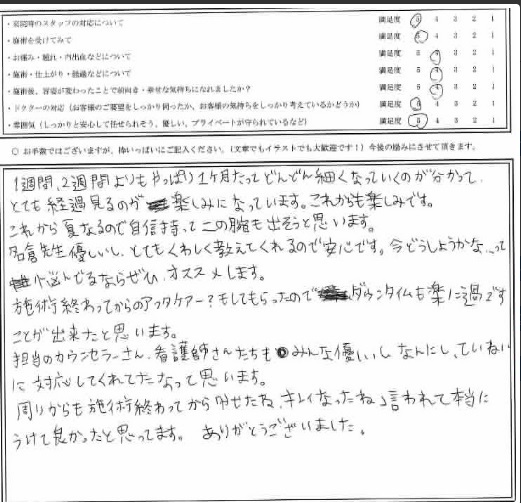 ・来院時のスタッフの対応について 満足度 5 4 3 2 1
・施術を受けてみて 満足度 5 4 3 2 1
・お痛み・腫れ・内出血などについて 満足度 5 4 3 2 1
・施術・仕上がり・経過などについて 満足度 5 4 3 2 1
・施術後、容姿が変わったことで前向き・幸せな気持ちになれましたか? 満足度 5 4 3 2 1
・ドクターの対応(お客様のご要望をしっかり伺ったか、お客様の気持ちをしっかり考えているかどうか) 満足度 5 4 3 2 1
・雰囲気(しっかりと安心して任せられそう、優しい、プライベートが守られているなど) 満足度 5 4 3 2 1
○ お手数ではございますが、枠いっぱいにご記入ください。(文章でもイラストでも大歓迎です!)今後の励みにさせて頂きます。
1週間、2週間よりもやっぱり1ヶ月たってどんどん細くなっていくのが分かって、
とても経過見るのが楽しみになっています。これからも楽しみです。
これから夏なるので自信持ってこの腕も出そうと思います。
名倉先生優しいし、とてもくわしく教えてくれるので安心です。今どうしようかな、って
悩んでるならぜひオススメします。
施術終わってからのアフタケアー?もしてもらったのでダウンタイムも楽に過ごす
ことが出来たと思います。
担当のカウンセラーさん、看護師さんたちもみんな優しいしなんにし、ていねい
に対応してくれてたなって思います。
周りからも施術終わってからやせたね、キレイなったねと言われて本当に
うけて良かったと思ってます。 ありがとうございました。